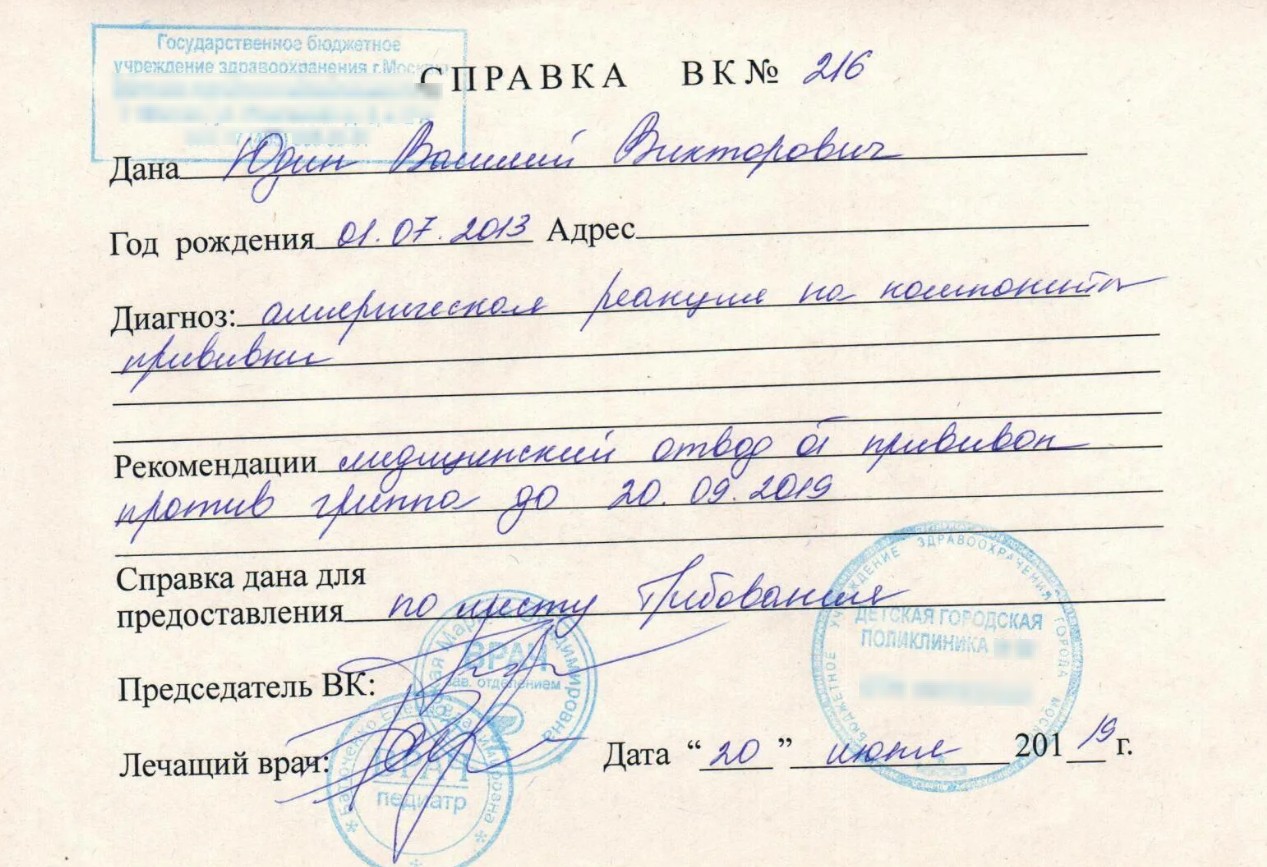 Государственное бюджетное
учреждение здравоохранения г.Москвы
СПРАВКА ВК№ 216
Дана Юдин Василий Викторович
Год рождения 01.07.2013 Адрес
Диагноз: аллергическая реакция на компоненты
прививки
Рекомендации медицинский отвод от прививок
против гриппа до 20.09.2019
Справка дана для
предоставления по месту требования
ВРАЧ
зав. отделением
ДЕТСКАЯ ГОРОДСКАЯ
ПОЛИКЛИНИКА
Председатель ВК:
Лечащий врач:
ВРАЧ
педиатр
Дата “20” июня 2019 г.